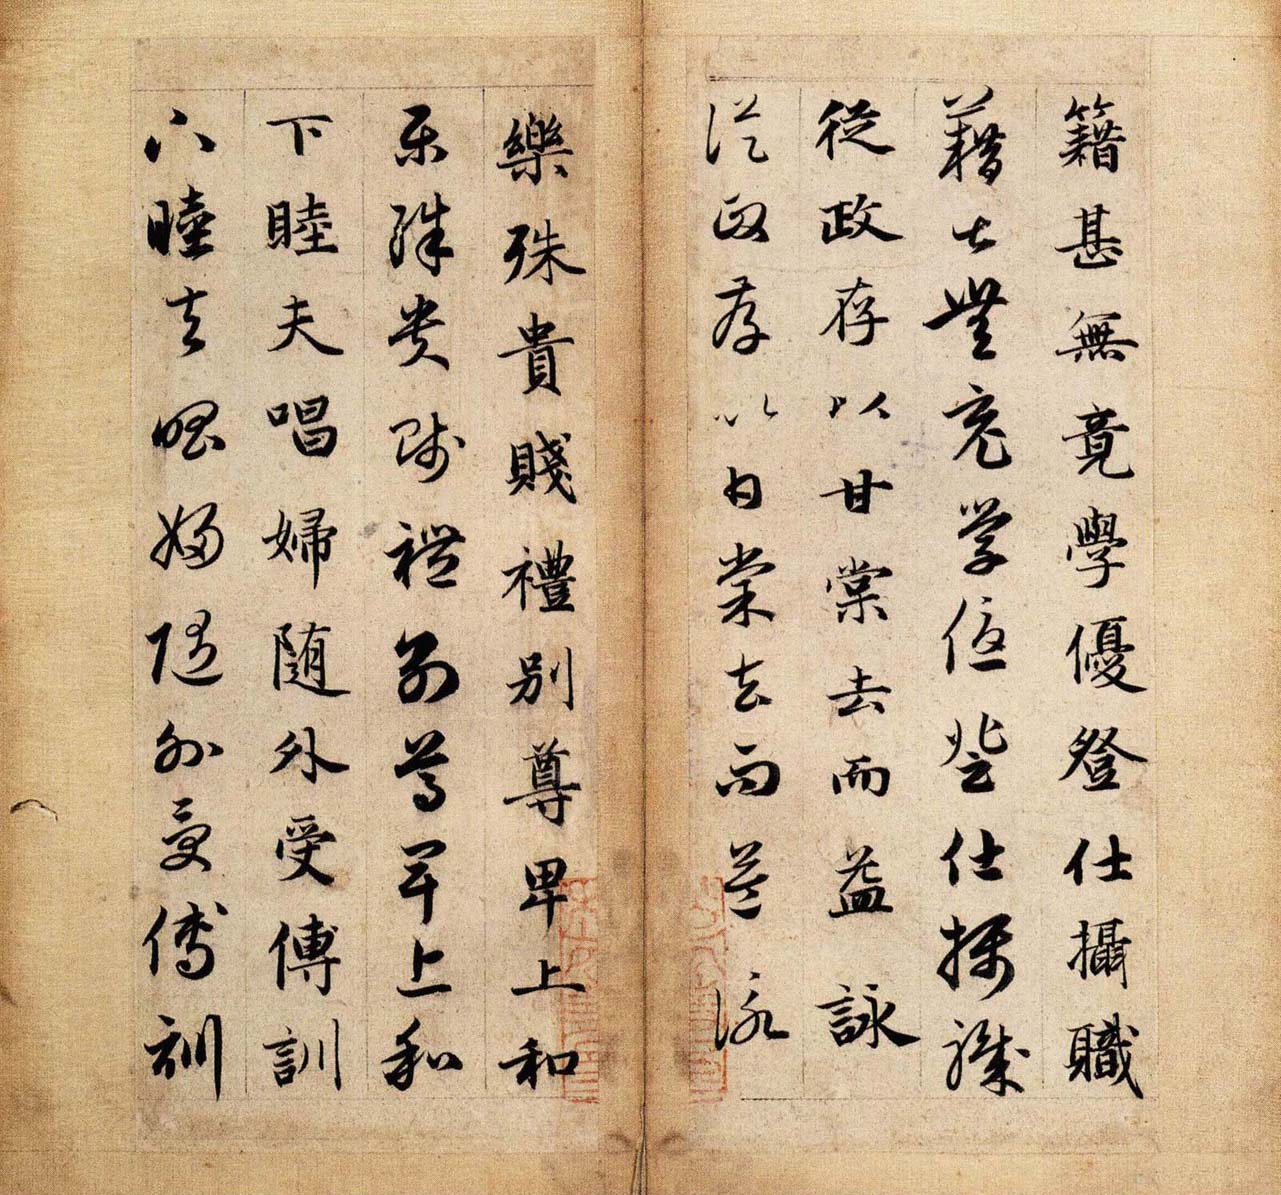 籍甚無竟學優登仕攝職
藉甚無竟學優登仕攝職
從政存以甘棠去而益詠
從政存以甘棠去而益詠
樂殊貴賤禮別尊卑上和
樂殊貴賤禮別尊卑上和
下睦夫唱婦随外受傅訓
下睦夫唱婦随外受傅訓